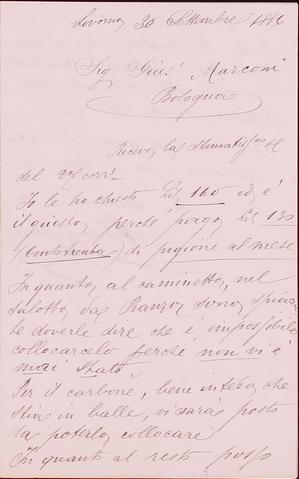 Livorno 30 Settembre 1886
Sig Gius.e Marconi
Bologna
Ricevo la Stimatiss.
del 27 corr.
Io le ho chiesto 160 ed è
il giusto, perché pago 130
(Centotrenta) di pigione al mese
In quanto al caminetto, nel
Salotto da Pranzo sono spiacen
te doverle dire che è impossibile
collocarcelo perché non vi è
mai stato.
Per il carbone, bene inteso che
stia in balle, vi sarà posto
da poterlo collocare
In quanto al resto posso